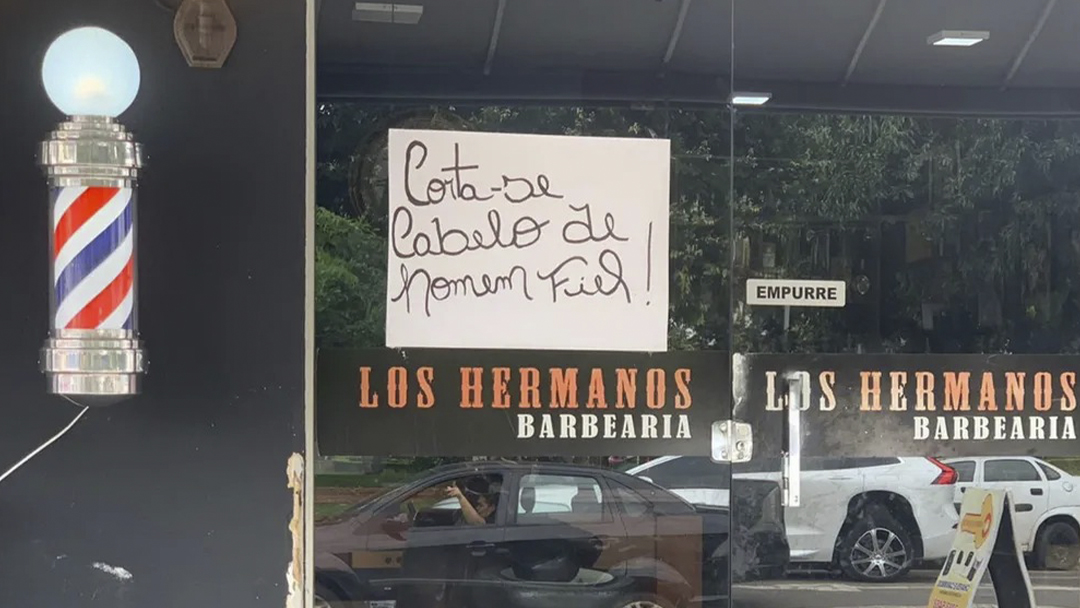 Corta-se
Cabelo de
Homem Fiel!
EMPURRE
LOS HERMANOS
BARBEARIA
LOS HERMANOS
BARBEARIA